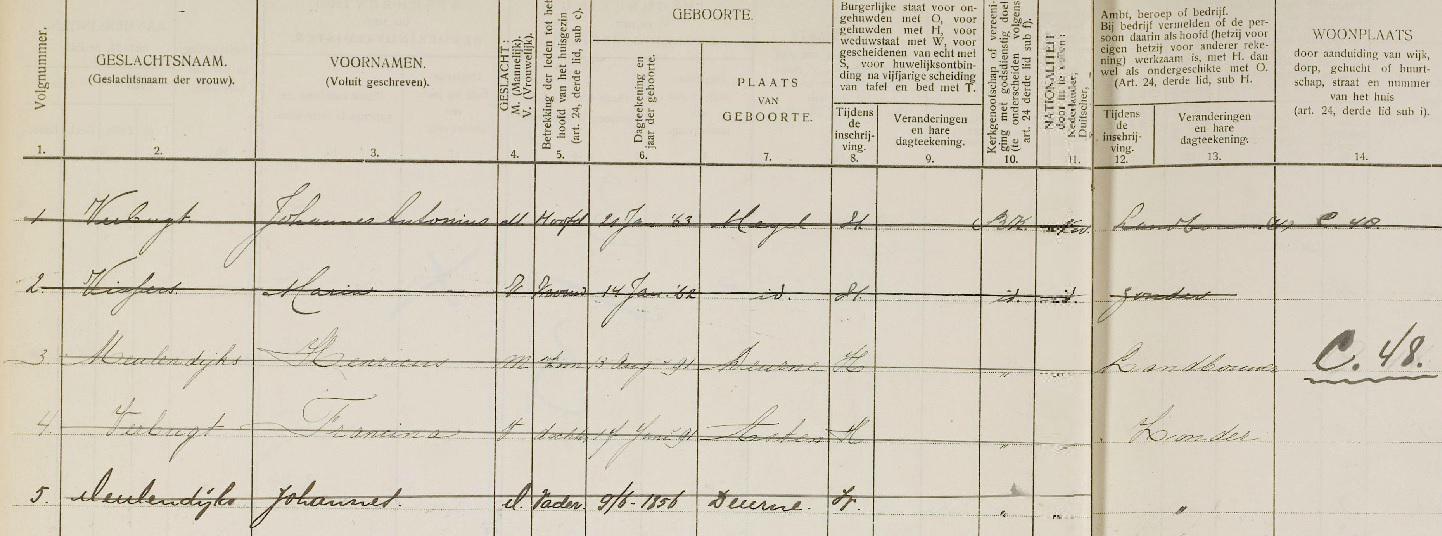 Volgnummer.
1.
GESLACHTSNAAM.
(Geslachtsnaam der vrouw).
2.
VOORNAMEN.
(Voluit geschreven).
3.
GESLACHT:
M. (Mannelijk).
V. (Vrouwelijk).
4.
Betrekking der leden tot het
hoofd van het huisgezin
(art. 24, derde lid, sub c).
5.
GEBOORTE.
Dagteekening en
jaar der geboorte.
6.
PLAATS
VAN
GEBOORTE.
7.
Burgerlijke staat voor on-
gehuwden met O, voor
gehuwden met H, voor
weduwstaat met W, voor
gescheidenen van echt met
S, voor huwelijksontbin-
ding na vijfjarige scheiding
van tafel en bed met T.
Tijdens
de
inschrij-
ving.
8.
Veranderingen
en hare
dagteekening.
9.
Kerkgenootschap of vereeni-
ging met godsdienstig doel
(te onderscheiden volgens
art. 24 derde lid, sub f).
10.
NATIONALITEIT
Nederlander,
Duitscher,
11.
Ambt, beroep of bedrijf.
Bij bedrijf vermelden of de per-
soon daarin als hoofd (hetzij voor
eigen hetzij voor anderer reke-
ning) werkzaam is, met H. dan
wel als ondergeschikte met O.
(Art. 24, derde lid, sub H.
Tijdens
de
inschrij-
ving.
12.
Veranderingen
en hare
dagteekening.
13.
WOONPLAATS
door aanduiding van wijk,
dorp, gehucht of buurt-
schap, straat en nummer
van het huis
(art. 24, derde lid sub i).
14.
1 Verbugt Johannes Antonius M. Hoofd 20 Jan '63 H. R.K. C. 48.
2. Maria V Vrouw 14 Jan '62 id. H. id. id. zonder
3 Meulendijks Henricus M 13 Aug '91 Deurne H " Landbouwer C. 48.
4. Verbugt Francina V Juni '91 H " Zonder
5. Meulendijks Johannes. M. Vader. 9/6-1856 Deurne. " " "